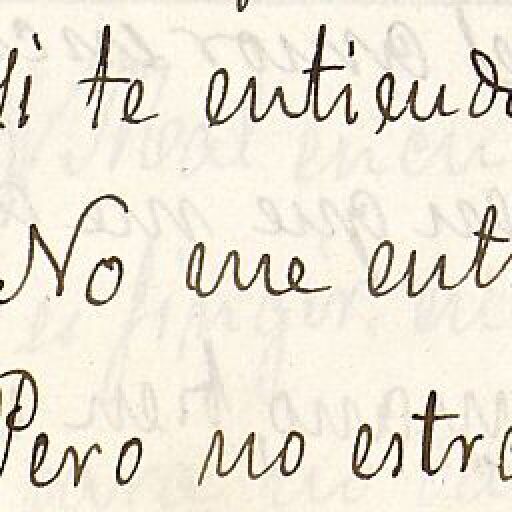 Si te entiendo
No me ent
Pero no estr